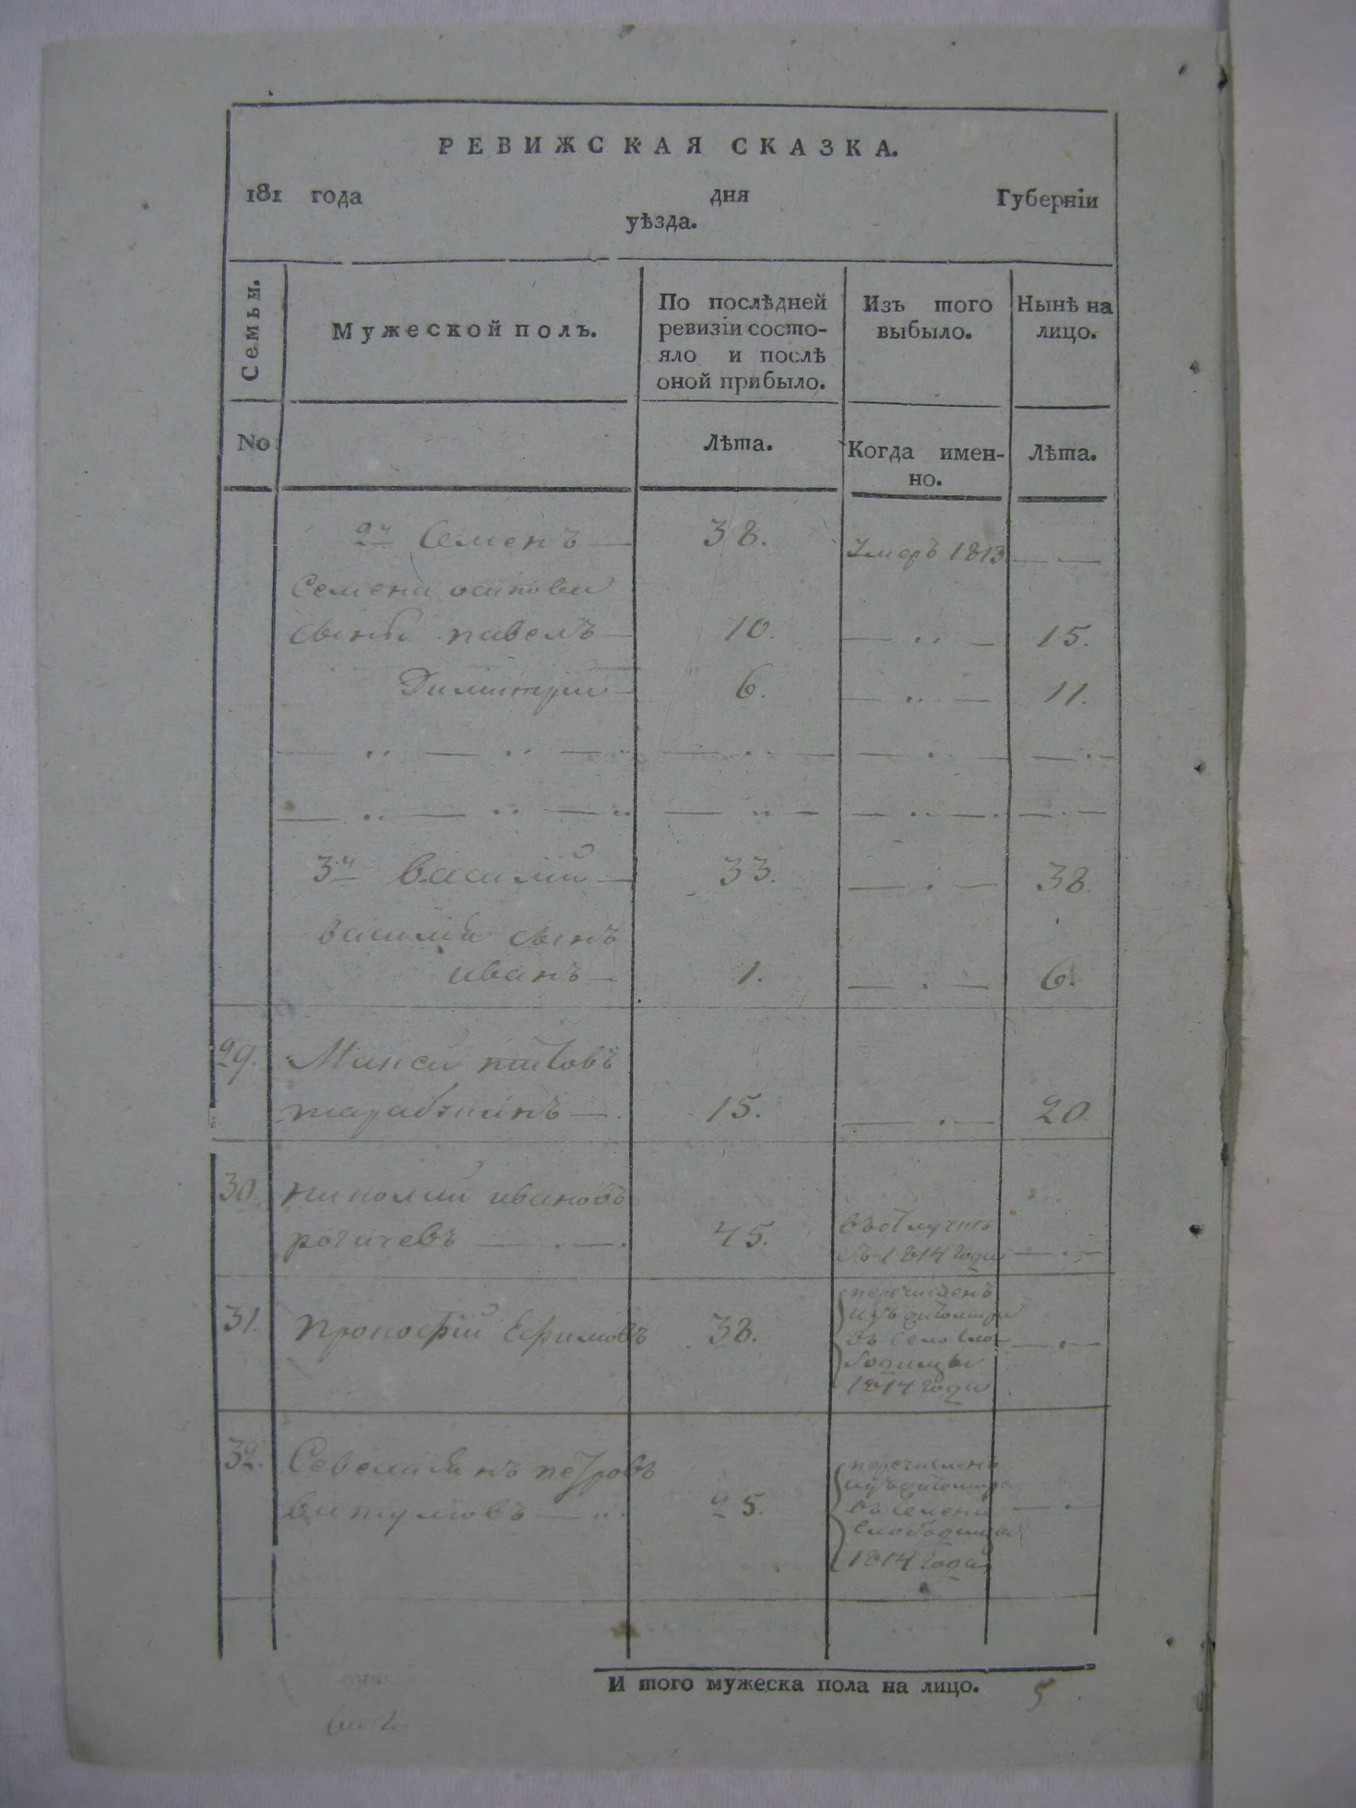 РЕВИЖСКАЯ СКАЗКА.
181 года дня Губерніи
уѣзда.
Семьи.
Мужеской полъ.
По послѣдней ревизіи состояло и послѣ оной прибыло.
Изъ того выбыло.
Нынѣ на лицо.
No
Лѣта.
Когда именно.
Лѣта.
2й Семенъ — 38. умеръ 1813 — —
Семена осипова
сынъ павелъ — 10. — „ — 15.
Димитрии — 6. — „ — 11.
3й василий — 33. — . — 38.
василия сынъ
иванъ — 1. — . — 6.
29.
титовъ
15. — . — 20.
30. николаи ивановъ
рогачевъ — . — . 45.
1814 года — . —
31. прокофий Ефимовъ 38. перечисленъ
въ село
1814 года
32. петровъ
25. перечисленъ
1814 года
И того мужеска пола на лицо. 5